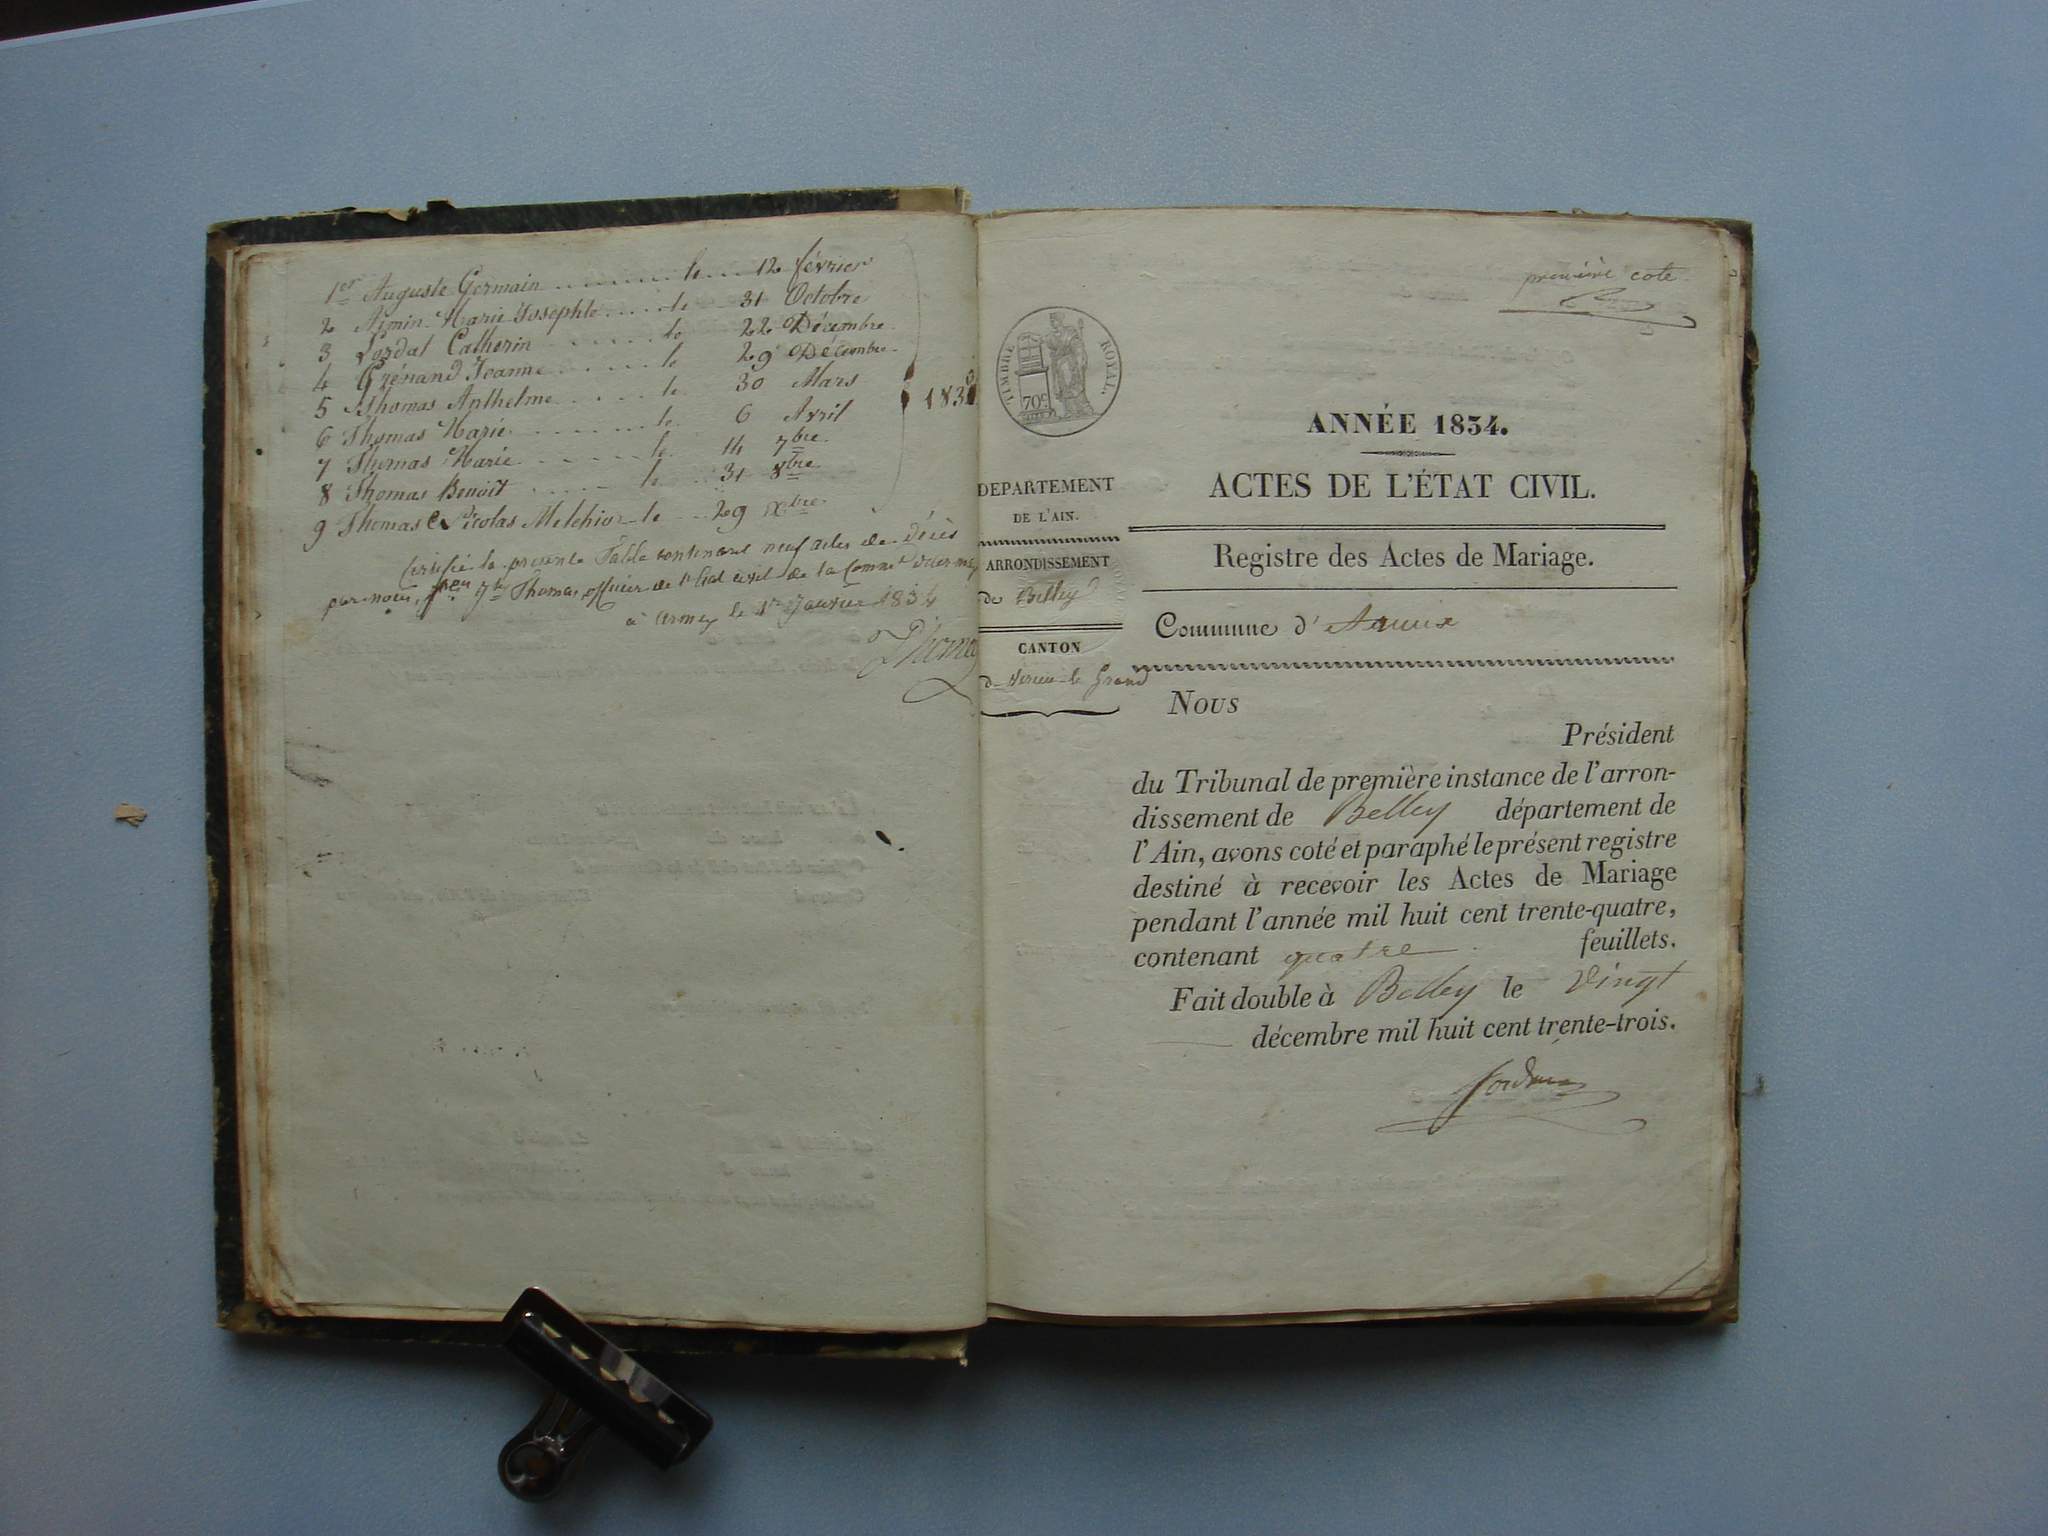 1er Auguste Germain le 12 février
2 Aimin Marie Josephte le 31 Octobre
3 Catherin le 22 Décembre
4 Grénand Jeanne le 29 Décembre
5 Thomas Anthelme le 30 Mars
6 Thomas Marie le 6 Avril
7 Thomas Marie le 14 7bre
8 Thomas Benoit le 31 8bre
9 Thomas Nicolas Melchior le 29 xbre
Certifié la presente Table contenant neuf actes de Décès
par nous, Thomas officier de l'Etat civil de la Comme
à le 1er Janvier 1834
Thomas
première cote
TIMBRE ROYAL.
70c
DEPARTEMENT
DE L'AIN.
ARRONDISSEMENT
de Belley
CANTON
de Virieu le Grand
ANNÉE 1834.
ACTES DE L'ÉTAT CIVIL.
Registre des Actes de Mariage.
Commune d'
Nous
Président
du Tribunal de première instance de l'arron-
dissement de Belley département de
l'Ain, avons coté et paraphé le présent registre
destiné à recevoir les Actes de Mariage
pendant l'année mil huit cent trente-quatre,
contenant quatre feuillets.
Fait double à Belley le vingt
décembre mil huit cent trente-trois.